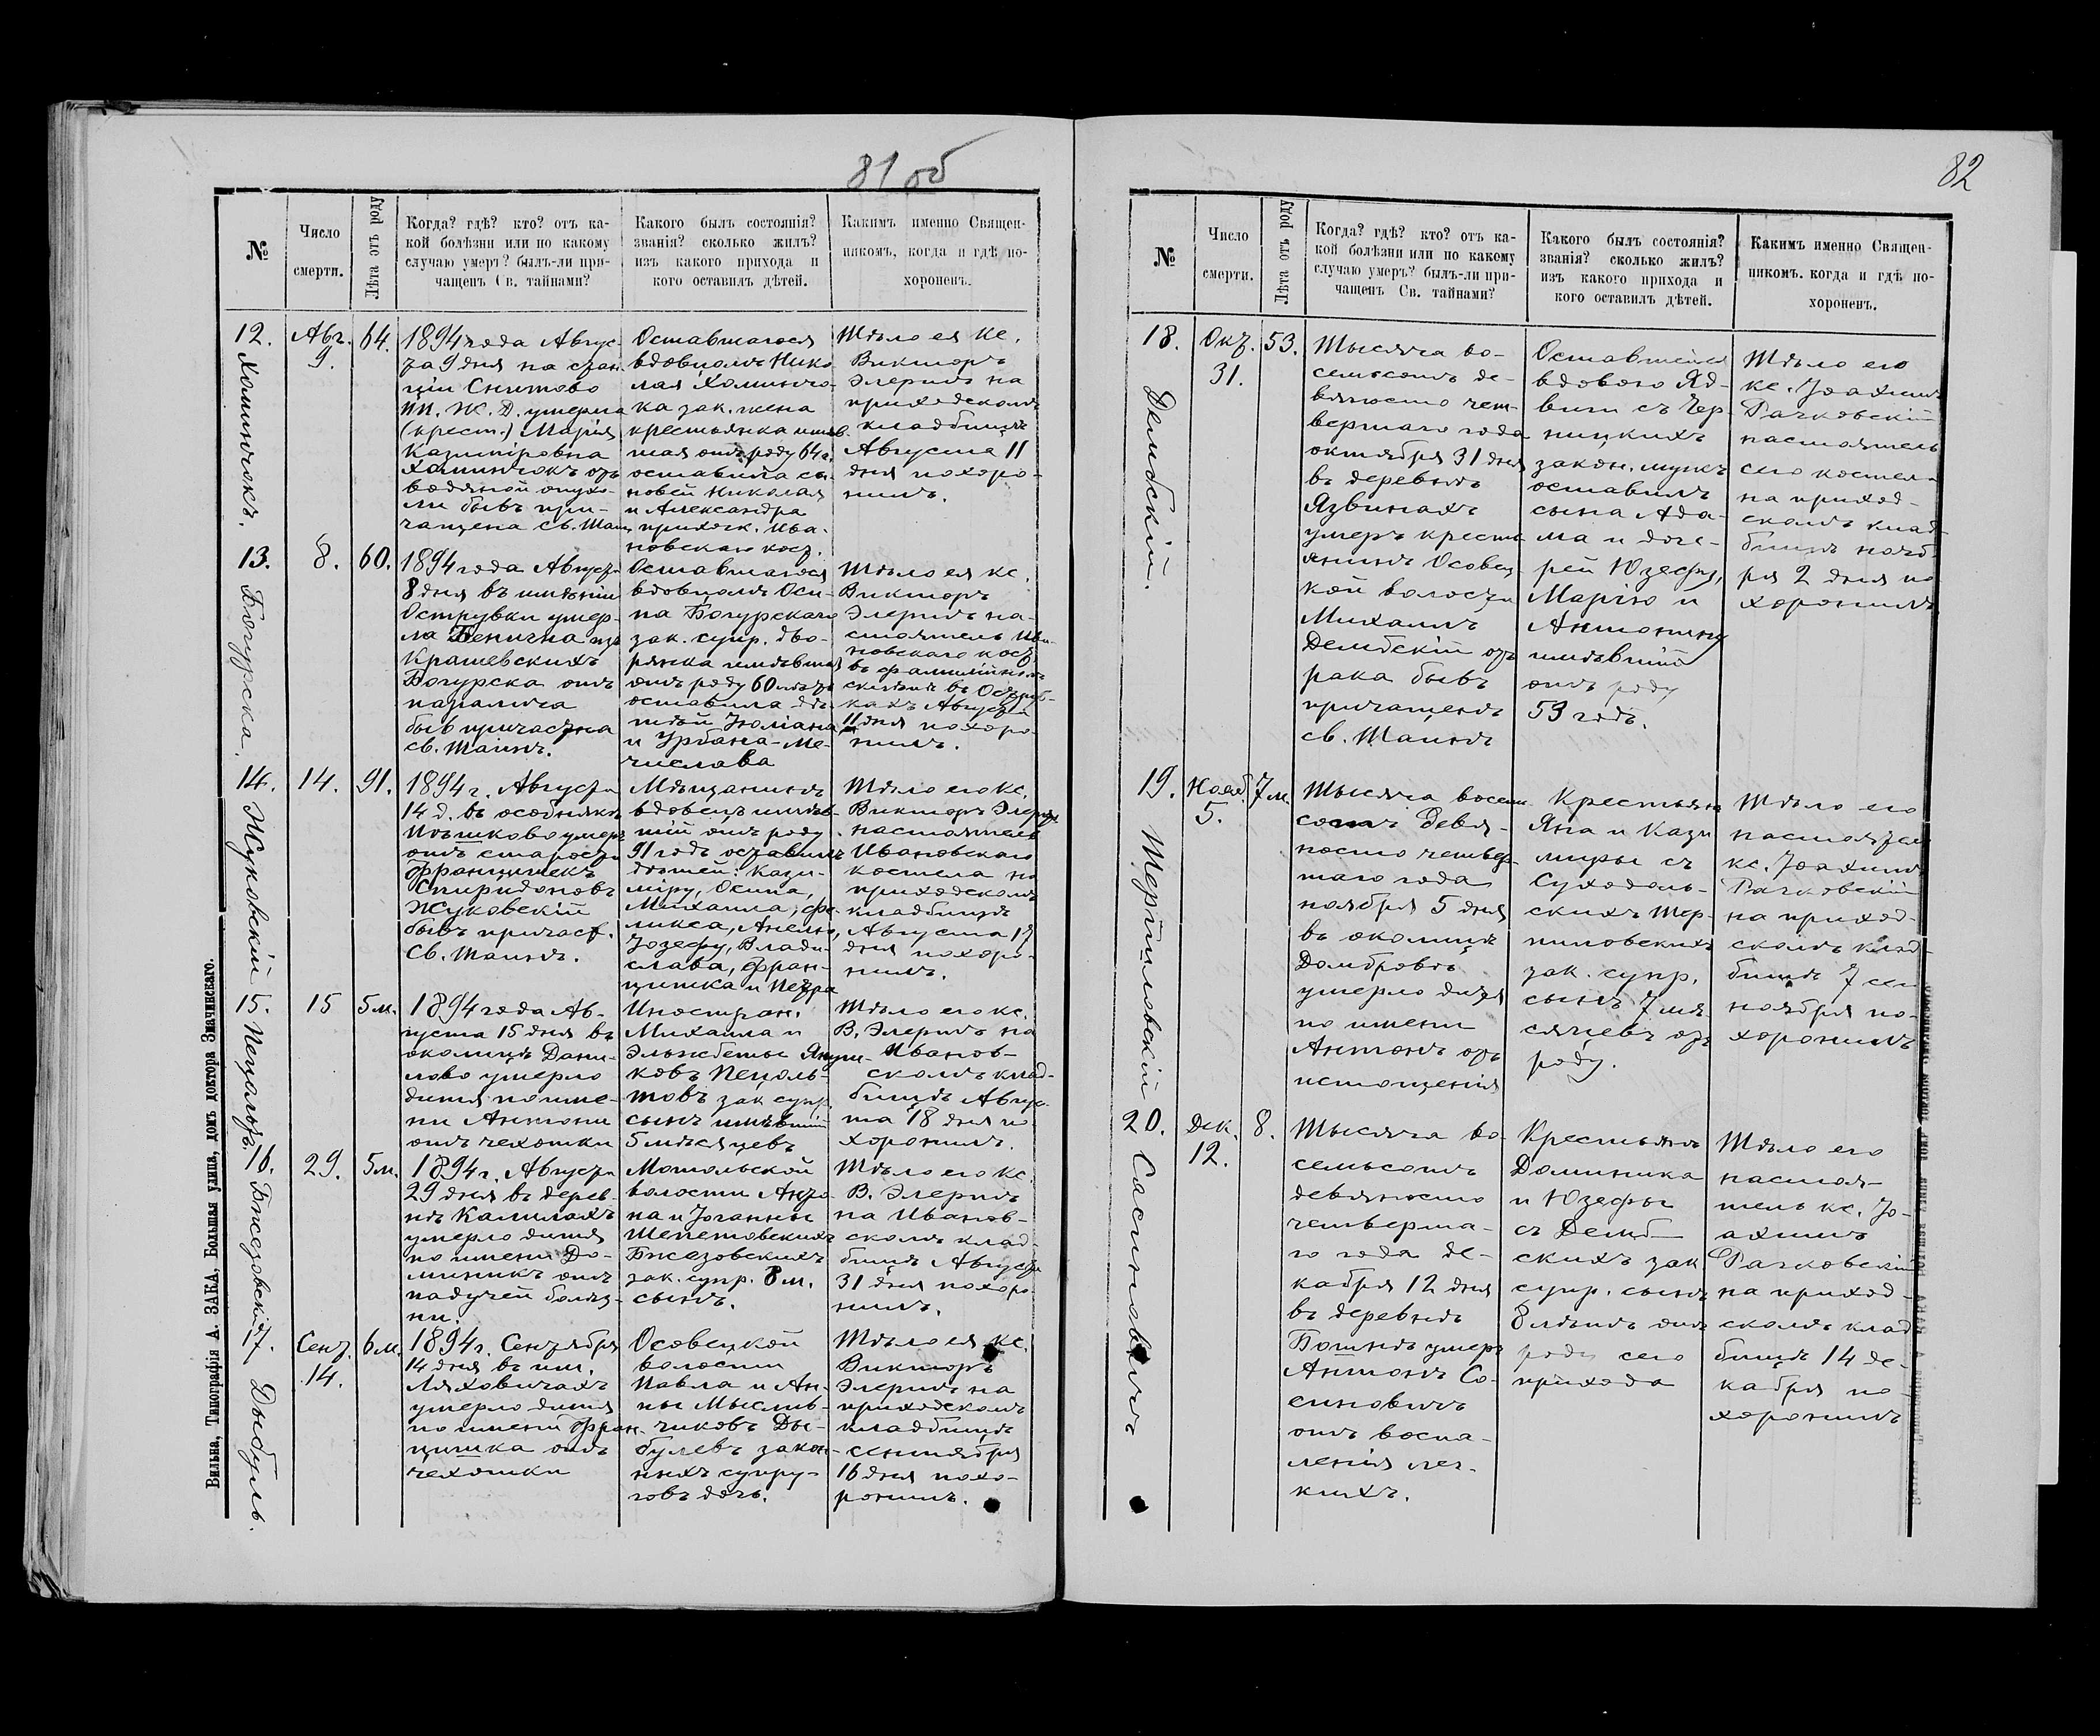 81 об
№
Число
смерти.
Лѣта отъ роду
Когда? гдѣ? кто? отъ ка-
кой болѣзни или по какому
случаю умеръ? былъ-ли при-
чащенъ Св. тайнами?
Какого былъ состоянія?
званія? сколько жилъ?
изъ какого прихода и
кого оставилъ дѣтей.
Какимъ именно Священ-
никомъ, когда и гдѣ по-
хороненъ.
12.
Хоминчокъ.
Авг.
9.
64.
1894 года Авгус-
та 9 дня на стан
ціи Снитово
П. Ж. Д. умерла
(крест.) Марія
Казиміровна
Хоминчокъ отъ
водяной опухо-
ли бывъ при-
чащена св. Таин
Оставшагося
вдовцомъ Нико
лая Хоминчо-
ка зак. жена
крестьянка имѣв.
шая отъ роду 64 г.
оставила сы-
новей Николая
и Александра
прихож. Ива-
новскаго кост.
Тѣло ея Кс.
Викторъ
Элертъ на
приходскомъ
кладбищѣ
Августа 11
дня похоро-
нилъ.
13.
Богурска.
8.
60.
1894 года Августа
8 дня въ имѣніи
Острувки умер-
ла Бенигна изъ
Крашевскихъ
Богурска отъ
паралича
быв причастна
св. Таинъ.
Оставшагося
вдовцомъ Оси-
па Богурскаго
зак. супр. дво-
рянка имѣвшая
отъ роду 60 лѣтъ
оставила дѣ-
тей Юліана
и Урбана-Ме-
числава
Тѣло ея кс.
Викторъ
Элертъ на-
стоятель Ива-
новскаго кост
въ фамилійномъ
склепѣ въ Острув-
кахъ Августа
11 дня похоро-
нилъ.
14.
Жуковскій
14.
91.
1894 г. Августа
14 д. въ особнякѣ
Ивашково умеръ
отъ старости
Францишекъ
Спиридоновъ
Жуковскій
бывъ причаст.
Св. Таинъ.
Мѣщанинъ
вдовецъ имѣв-
шій отъ роду
91 годъ оставилъ
дѣтей: Кази-
міру, Осипа,
Михаила, Фе-
ликса, Анелю,
Юзефу, Влади-
слава, Фран-
цишка и Петра
Тѣло его Кс.
Викторъ Элертъ
настоятель
Ивановскаго
костела на
приходскомъ
кладбищѣ
Августа 17
дня похоро-
нилъ.
15.
Пецольтъ.
15
5 м.
1894 года Ав-
густа 15 дня въ
околицѣ Дани-
лово умерло
дитя по име-
ни Антони
отъ чехотки
Иностран.
Михаила и
Эльжбеты Януш-
ковъ Пецоль-
товъ зак супр.
сынъ имѣвшій
5 мѣсяцевъ
Тѣло его кс.
В. Элертъ на
Иванов-
скомъ клад-
бищѣ Авгус-
та 18 дня по
хоронилъ.
16.
Бжезовскій
29.
5 м.
1894 г. Августа
29 дня въ дерев-
нѣ Калилахъ
умерло дитя
по имени До-
миникъ отъ
падучей болѣз-
ни.
Мотольской
волости Анто-
на и Іоганны
Шепетовскихъ
Бжезовскихъ
зак. супр. 8 м.
сынъ.
Тѣло его кс
В. Элертъ
на Иванов-
скомъ клад-
бищѣ Августа
31 дня похоро-
нилъ.
17.
Дыбуль.
Сент.
14.
6 м.
1894 г. Сентября
14 дня въ им.
Ляховичахъ
умерло дитя
по имени Фран-
цишка отъ
чехотки
Осовецкой
волости
Павла и Ан-
ны Мыслив-
чиковъ Ды-
булевъ закон-
ныхъ супру-
говъ дочь.
Тѣло ея кс.
Викторъ
Элертъ на
приходскомъ
кладбищѣ
сентября
16 дня похо-
ронилъ.
Вильна, Типографія А. ЗАКА, Большая улица, домъ доктора Значинскаго.
82
№
Число
смерти.
Лѣта отъ роду
Когда? гдѣ? кто? отъ ка-
кой болѣзни или по какому
случаю умеръ? былъ-ли при-
чащенъ Св. тайнами?
Какого былъ состоянія?
званія? сколько жилъ?
изъ какого прихода и
кого оставилъ дѣтей.
Какимъ именно Священ-
никомъ. когда и гдѣ по-
хороненъ.
18.
Дембскій.
Окт.
31.
53.
Тысяча во-
семьсотъ де-
вяносто чет-
вертаго года
октября 31 дня
въ деревнѣ
Язвинахъ
умеръ кресть
янинъ Осовец-
кой волости
Михаилъ
Дембскій отъ
рака бывъ
причащенъ
св. Таинъ
Оставшейся
вдовою Яд-
виги съ Чер-
ницкихъ
закон. мужъ
оставилъ
сына Ада-
ма и доче-
рей Юзефу,
Марію и
Антонину
имѣвшій
отъ роду
53 годъ.
Тѣло его
кс. Іоахимъ
Рачковскій
настоятель
сего костел-
на приход-
скомъ клад-
бищѣ нояб-
ря 2 дня по
хоронилъ
19.
Терпиловскій
Нояб.
5.
7 м.
Тысяча восем
сотъ девя-
носто четвер-
таго года
ноября 5 дня
въ околицѣ
Домбровѣ
умерло дитя
по имени
Антонъ отъ
истощенія
Крестьянъ
Яна и Кази
миры съ
Суходоль-
скихъ Тер-
пиловскихъ
зак. супр.
сынъ 7 мѣ-
сяцевъ отъ
роду.
Тѣло его
настоятель
кс. Іоахимъ
Рачковскій
на приход-
скомъ клад-
бищѣ 7 сего
ноября по-
хоронилъ
20.
Сасиновичъ
Дек.
12.
8.
Тысяча во-
семьсотъ
девяносто
четверта-
го года де-
кабря 12 дня
въ деревнѣ
умеръ
Антонъ Со-
синовичъ
отъ воспа-
ленія лег-
кихъ.
Крестьянъ
Доминика
и Юзефы
съ Демб-
скихъ зак
супр. сынъ
8 лѣтъ отъ
роду сего
прихода
Тѣло его
настоя-
тель кс. Іо-
ахимъ
Рачковскій
на приход-
скомъ клад
бищѣ 14 де-
кабря по-
хоронилъ